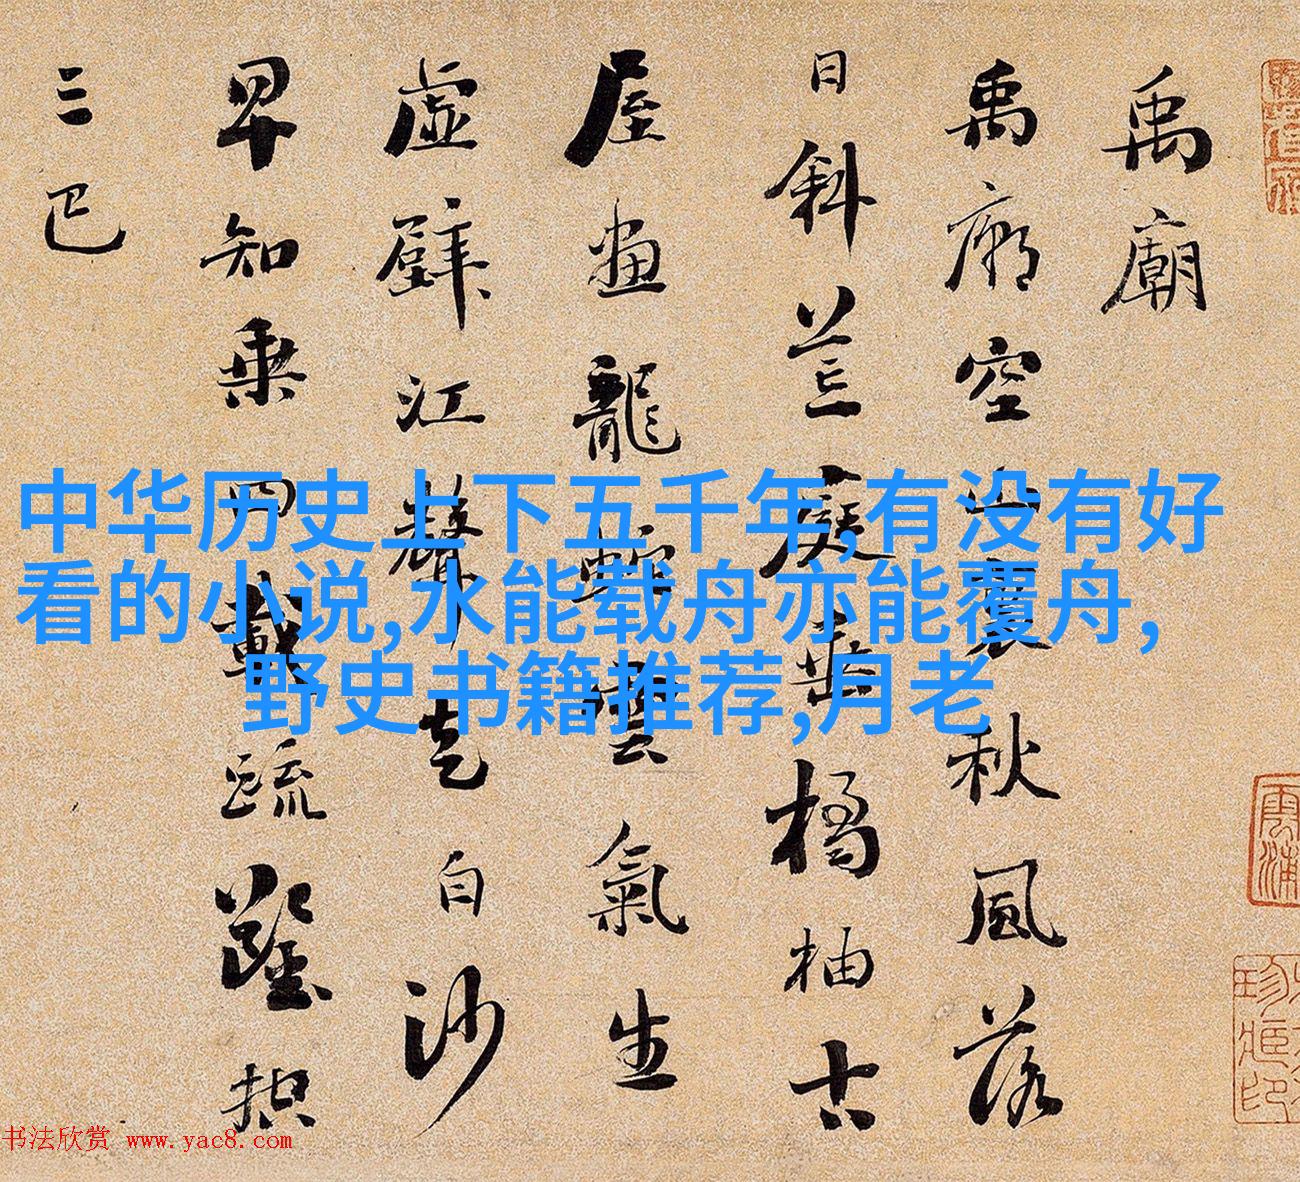 禹廟
禹廟空山裏秋風落
日斜荒庭垂橘柚古
屋畫龍蛇雲氣生
虛壁江聲走白沙
早知乘四載疏鑿控
三巴
中华历史上下五千年,有没有好
看的小说,水能载舟亦能覆舟,
野史书籍推荐,月老
书法欣赏 www.yac8.com